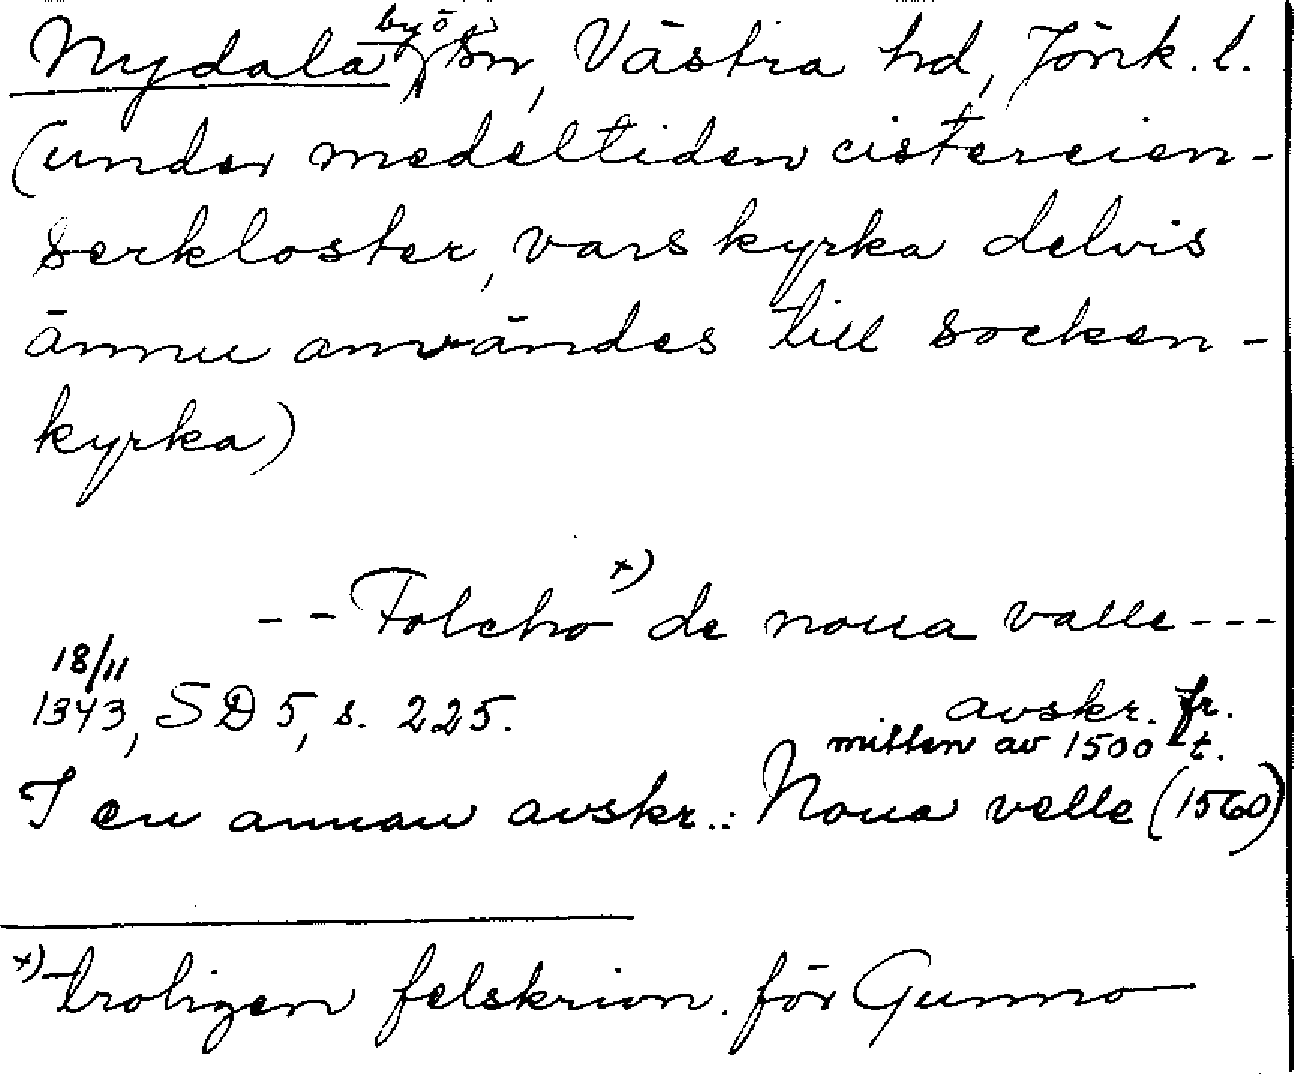 Nydala by o sn, Västra hd, Jönk. l.
(under medeltiden cistercien-
serkloster, vars kyrka delvis
ännu användes till socken-
kyrka)
-- Folcho x) de noua valle ---
18/11
1343, SD 5, s. 225.
avskr. fr.
mitten av 1500-t.
I en annan avskr.: Noua velle (1560)
x) troligen felskrivn. för Gunno